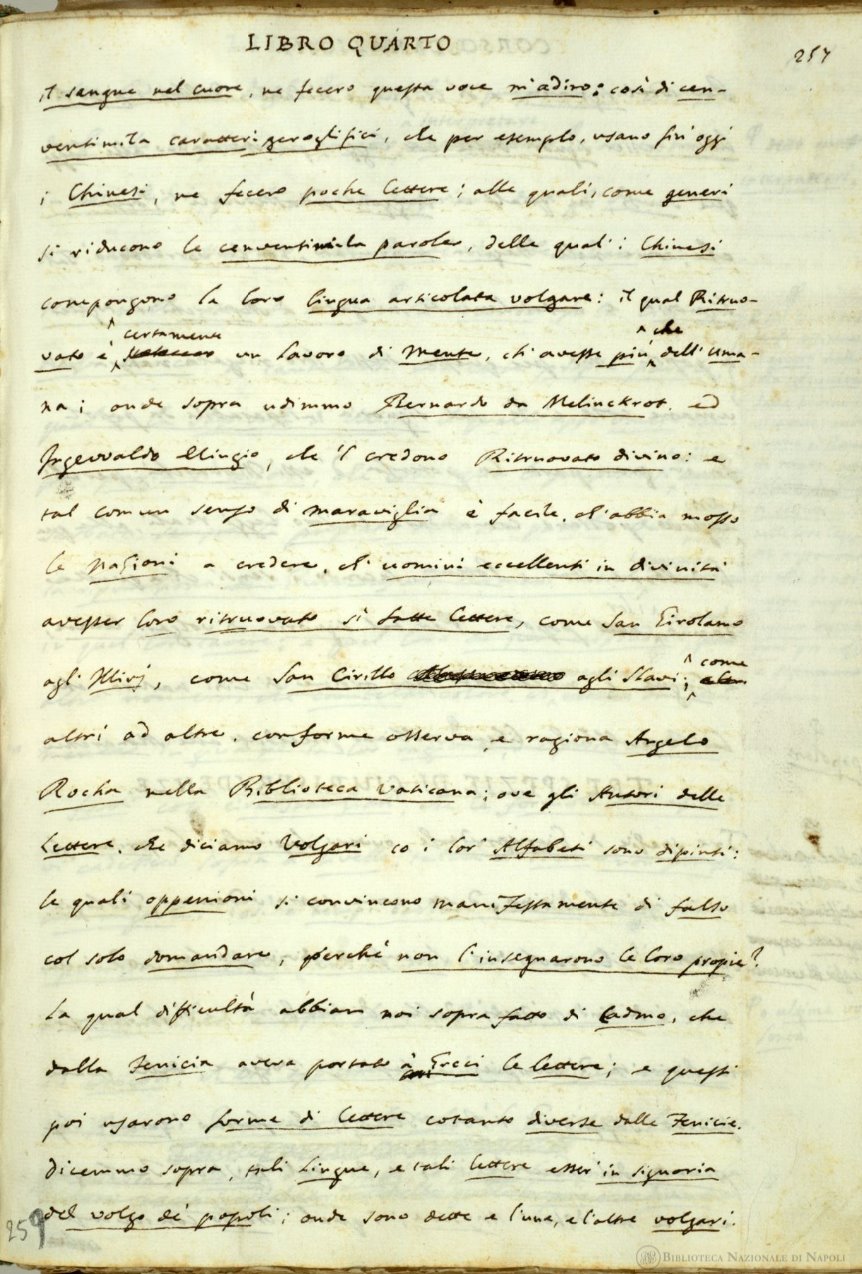 LIBRO QUARTO
257
il sangue nel cuore, ne fecero questa voce m'adiro: così di cen-
ventimila caratteri geroglifici, che per esemplo, usano fin'oggi
i Chinesi, ne fecero poche lettere; alle quali, come generi
si riducono le cenventimila parole, delle quali i Chinesi
compongono la loro lingua articolata volgare: il qual Ritruo-
certamente che
vato è un lavoro di mente, ch'avesse più dell'uma-
na; onde sopra udimmo Bernardo da Melinckrot, ed
Ingevvaldo Elingio, che 'l credono Ritruovato divino: e
tal comun senso di maraviglia è facile, ch'abbia mosso
le nazioni a credere, ch'uomini eccellenti in divinità
avesser loro ritruovato sì fatte lettere, come San Girolamo
agl'Illirj, come San Cirillo agli Slavi; come
altri ad altre, conforme osserva, e ragiona Angelo
Rocha nella Biblioteca Vaticana; ove gli Autori delle
Lettere, che diciamo Volgari co i lor' Alfabeti sono dipinti:
le quali oppenioni si convincono manifestamente di falso
col solo domandare, perchè non l'insegnarono le loro propie?
la qual difficultà abbiam noi sopra fatto di Cadmo, che
dalla Fenicia aveva portato a' Greci le lettere; e questi
poi usarono forme di lettere cotanto diverse dalle Fenicie.
Dicemmo sopra, tali Lingue, e tali lettere esser in signoria
del volgo de' popoli; onde sono dette e l'une, e l'altre volgari.
259
BIBLIOTECA NAZIONALE DI NAPOLI